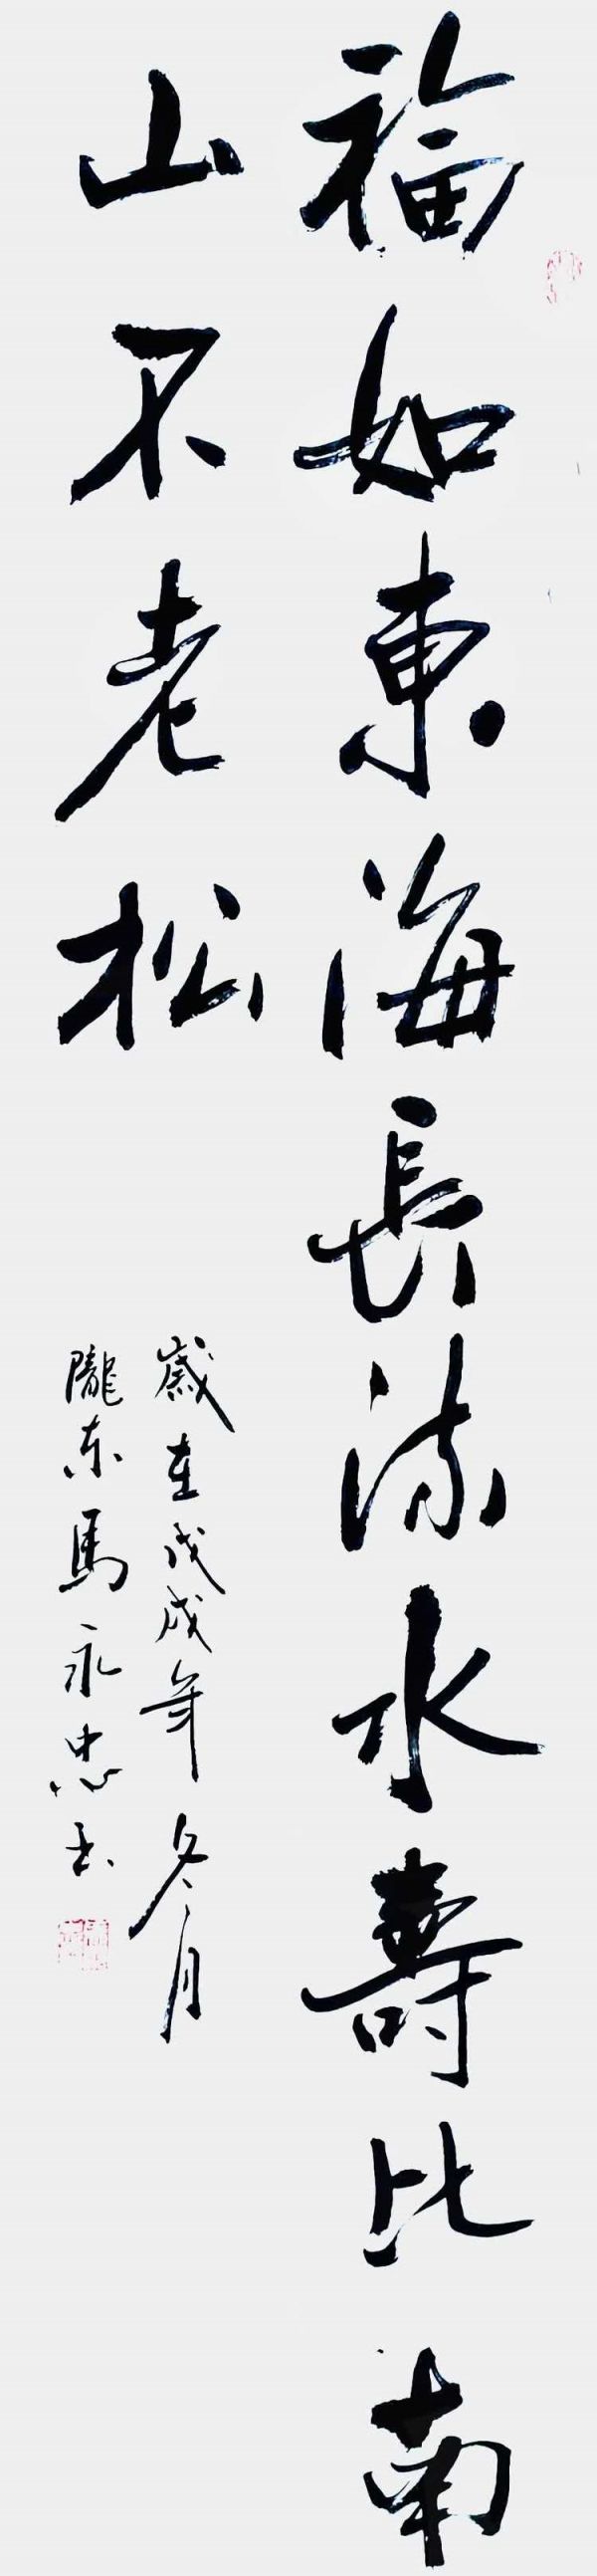 福如東海長流水壽比南
山不老松
歲在戊戌年冬月
隴东馬永忠书